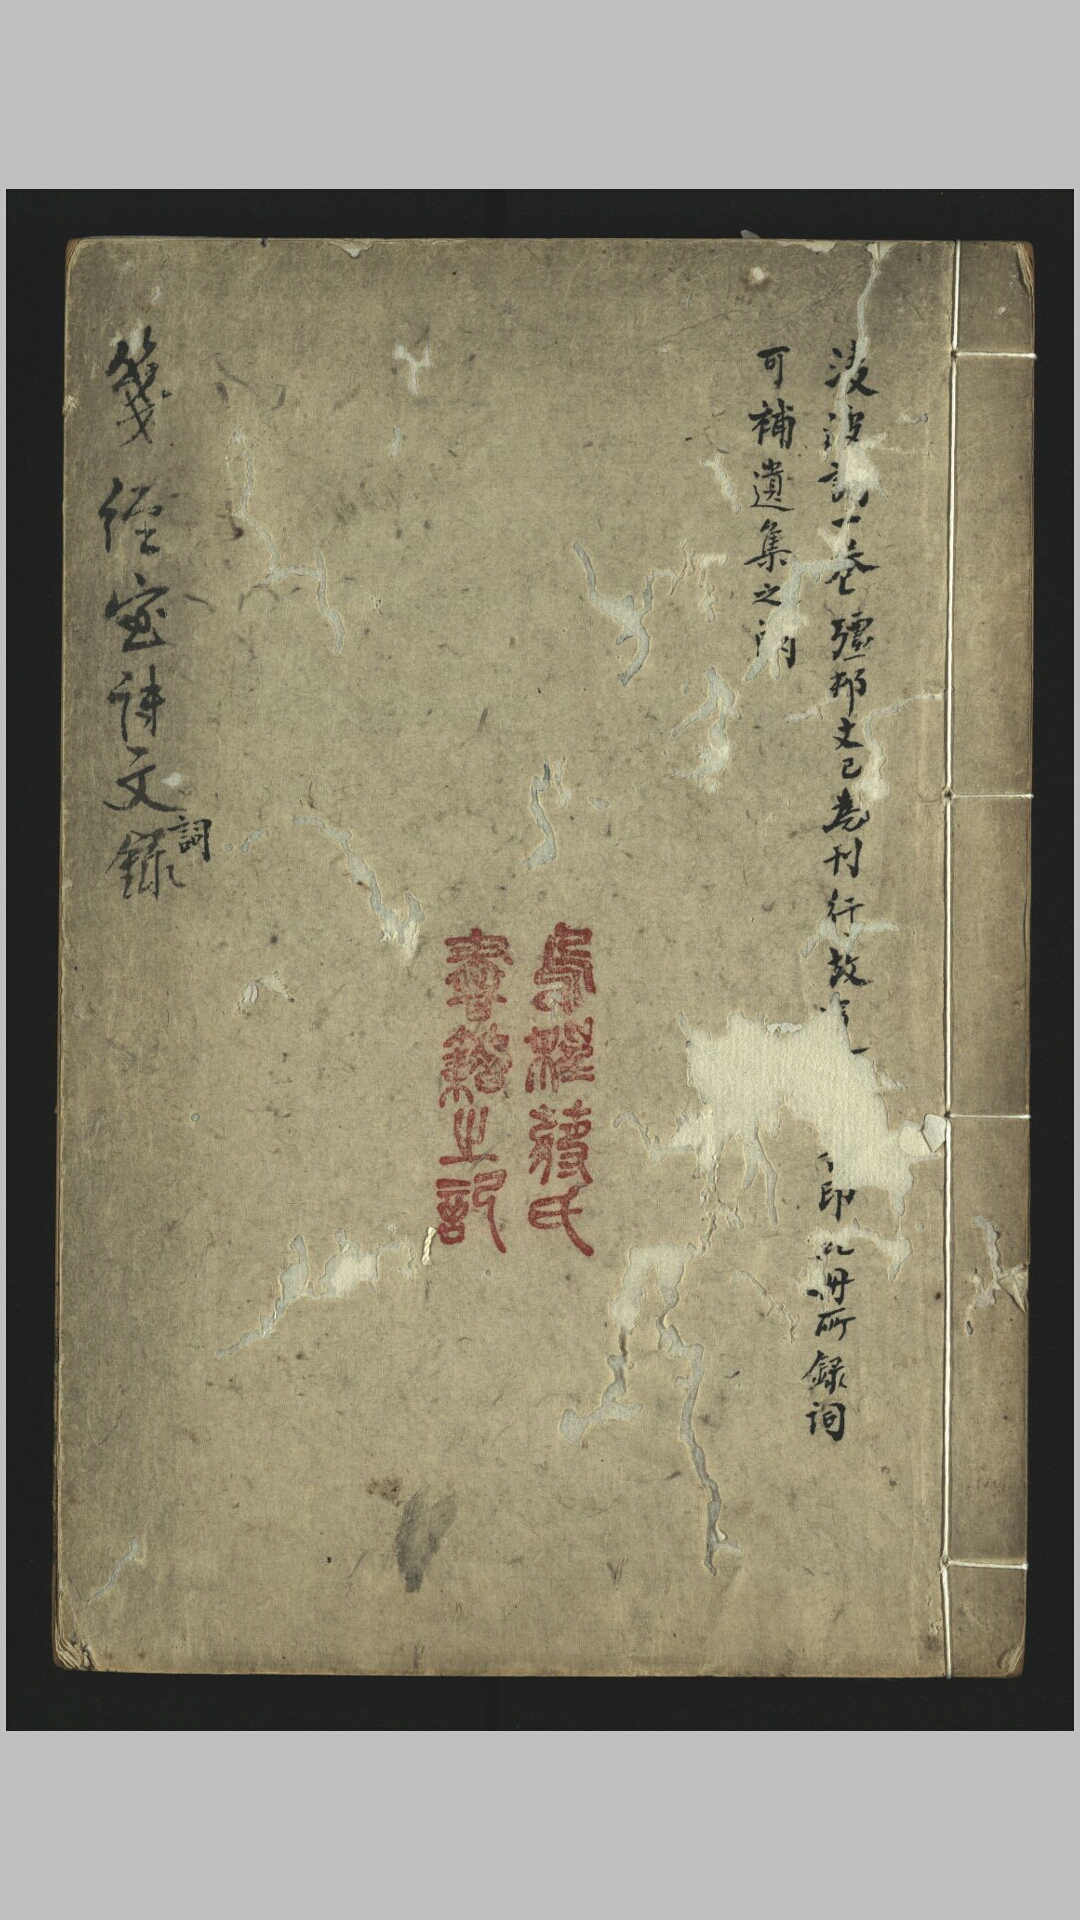 淩波詞一卷彊邨丈已為刊行故印此冊所錄詞
可補遺集之闕
烏程蔣氏
書籍之記
箋經室詩文詞錄